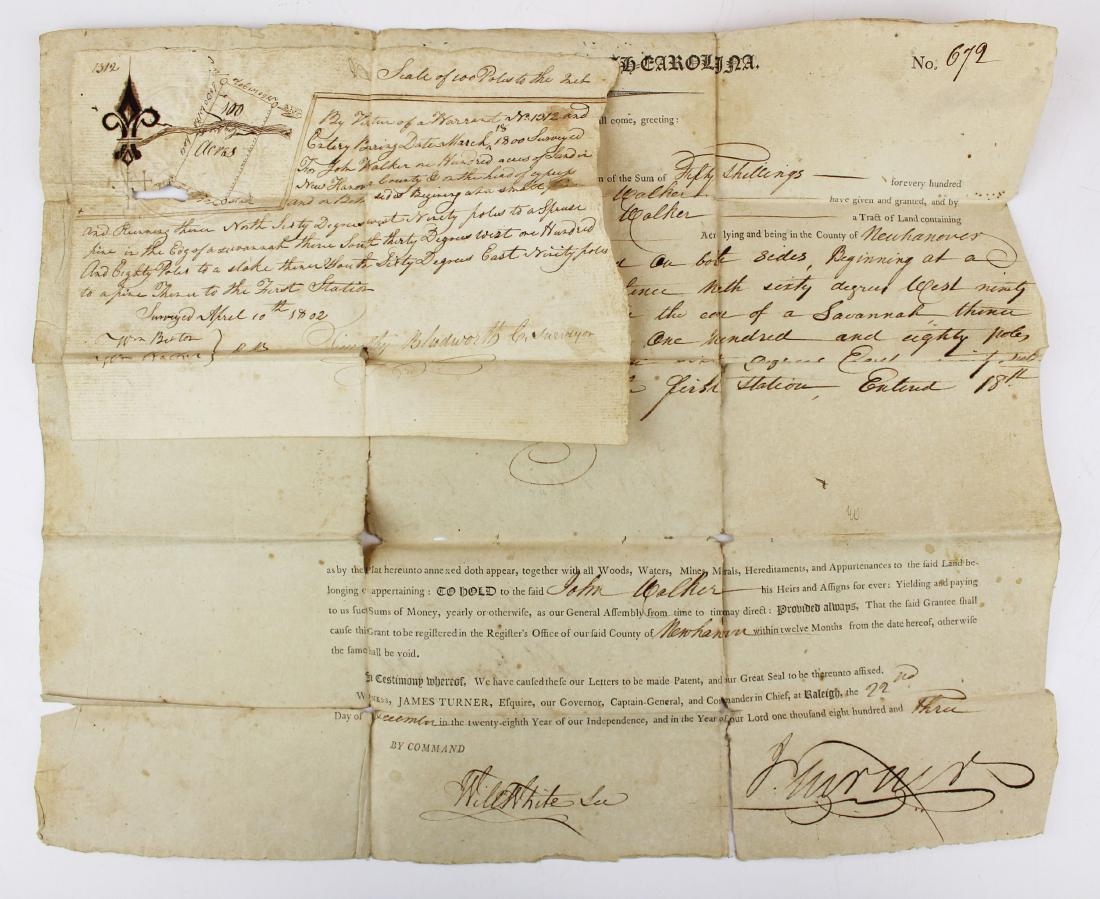 1312
Scale of 100 Poles to the Inch
100
Acres
By Virtue of a Warrant No 1312 and
Entery Baring Date March 18 1800 Surveyed
For John Walker one Hundred acres of Land in
New Hanor County & on the head of cypress
and on Both sides Begining at a small
and Running thence North Sixty Degrees west Ninety poles to a Spruse
pine in the Edg of a savannah thence South thirty Degrees west one Hundred
And Eighty Poles to a stake thence South Sixty Degrees East Ninity poles
to a pine Thence to the First Station
Surveyed April 10th 1802
Timothy Bludworth Co. surveyor
Wm
Wm
H CAROLINA.
No. 672
ll come, greeting:
n of the Sum of Fifty Shillings for every hundred
Walker have given and granted, and by
Walker a Tract of Land containing
Acres lying and being in the County of Newhanover
On both sides, Beginning at a
thence North sixty degrees West ninety
the edge of a Savannah, thence
One hundred and eighty poles
degrees East
first Station, Entered 18th
as by the Plat hereunto annexed doth appear, together with all Woods, Waters, Mines, Minerals, Hereditaments, and Appurtenances to the said Land be-
longing or appertaining: TO HOLD to the said John Walker his Heirs and Assigns for ever: Yielding and paying
to us such Sums of Money, yearly or otherwise, as our General Assembly from time to time may direct: Provided always, That the said Grantee shall
cause this Grant to be registered in the Register's Office of our said County of Newhanover within twelve Months from the date hereof, otherwise
the same shall be void.
In Testimony whereof, We have caused these our Letters to be made Patent, and our Great Seal to be thereunto affixed.
Witness, JAMES TURNER, Esquire, our Governor, Captain-General, and Commander in Chief, at Raleigh, the 22nd
Day of December in the twenty-eighth Year of our Independence, and in the Year of our Lord one thousand eight hundred and Three
BY COMMAND
Will White Sec
J. Turner